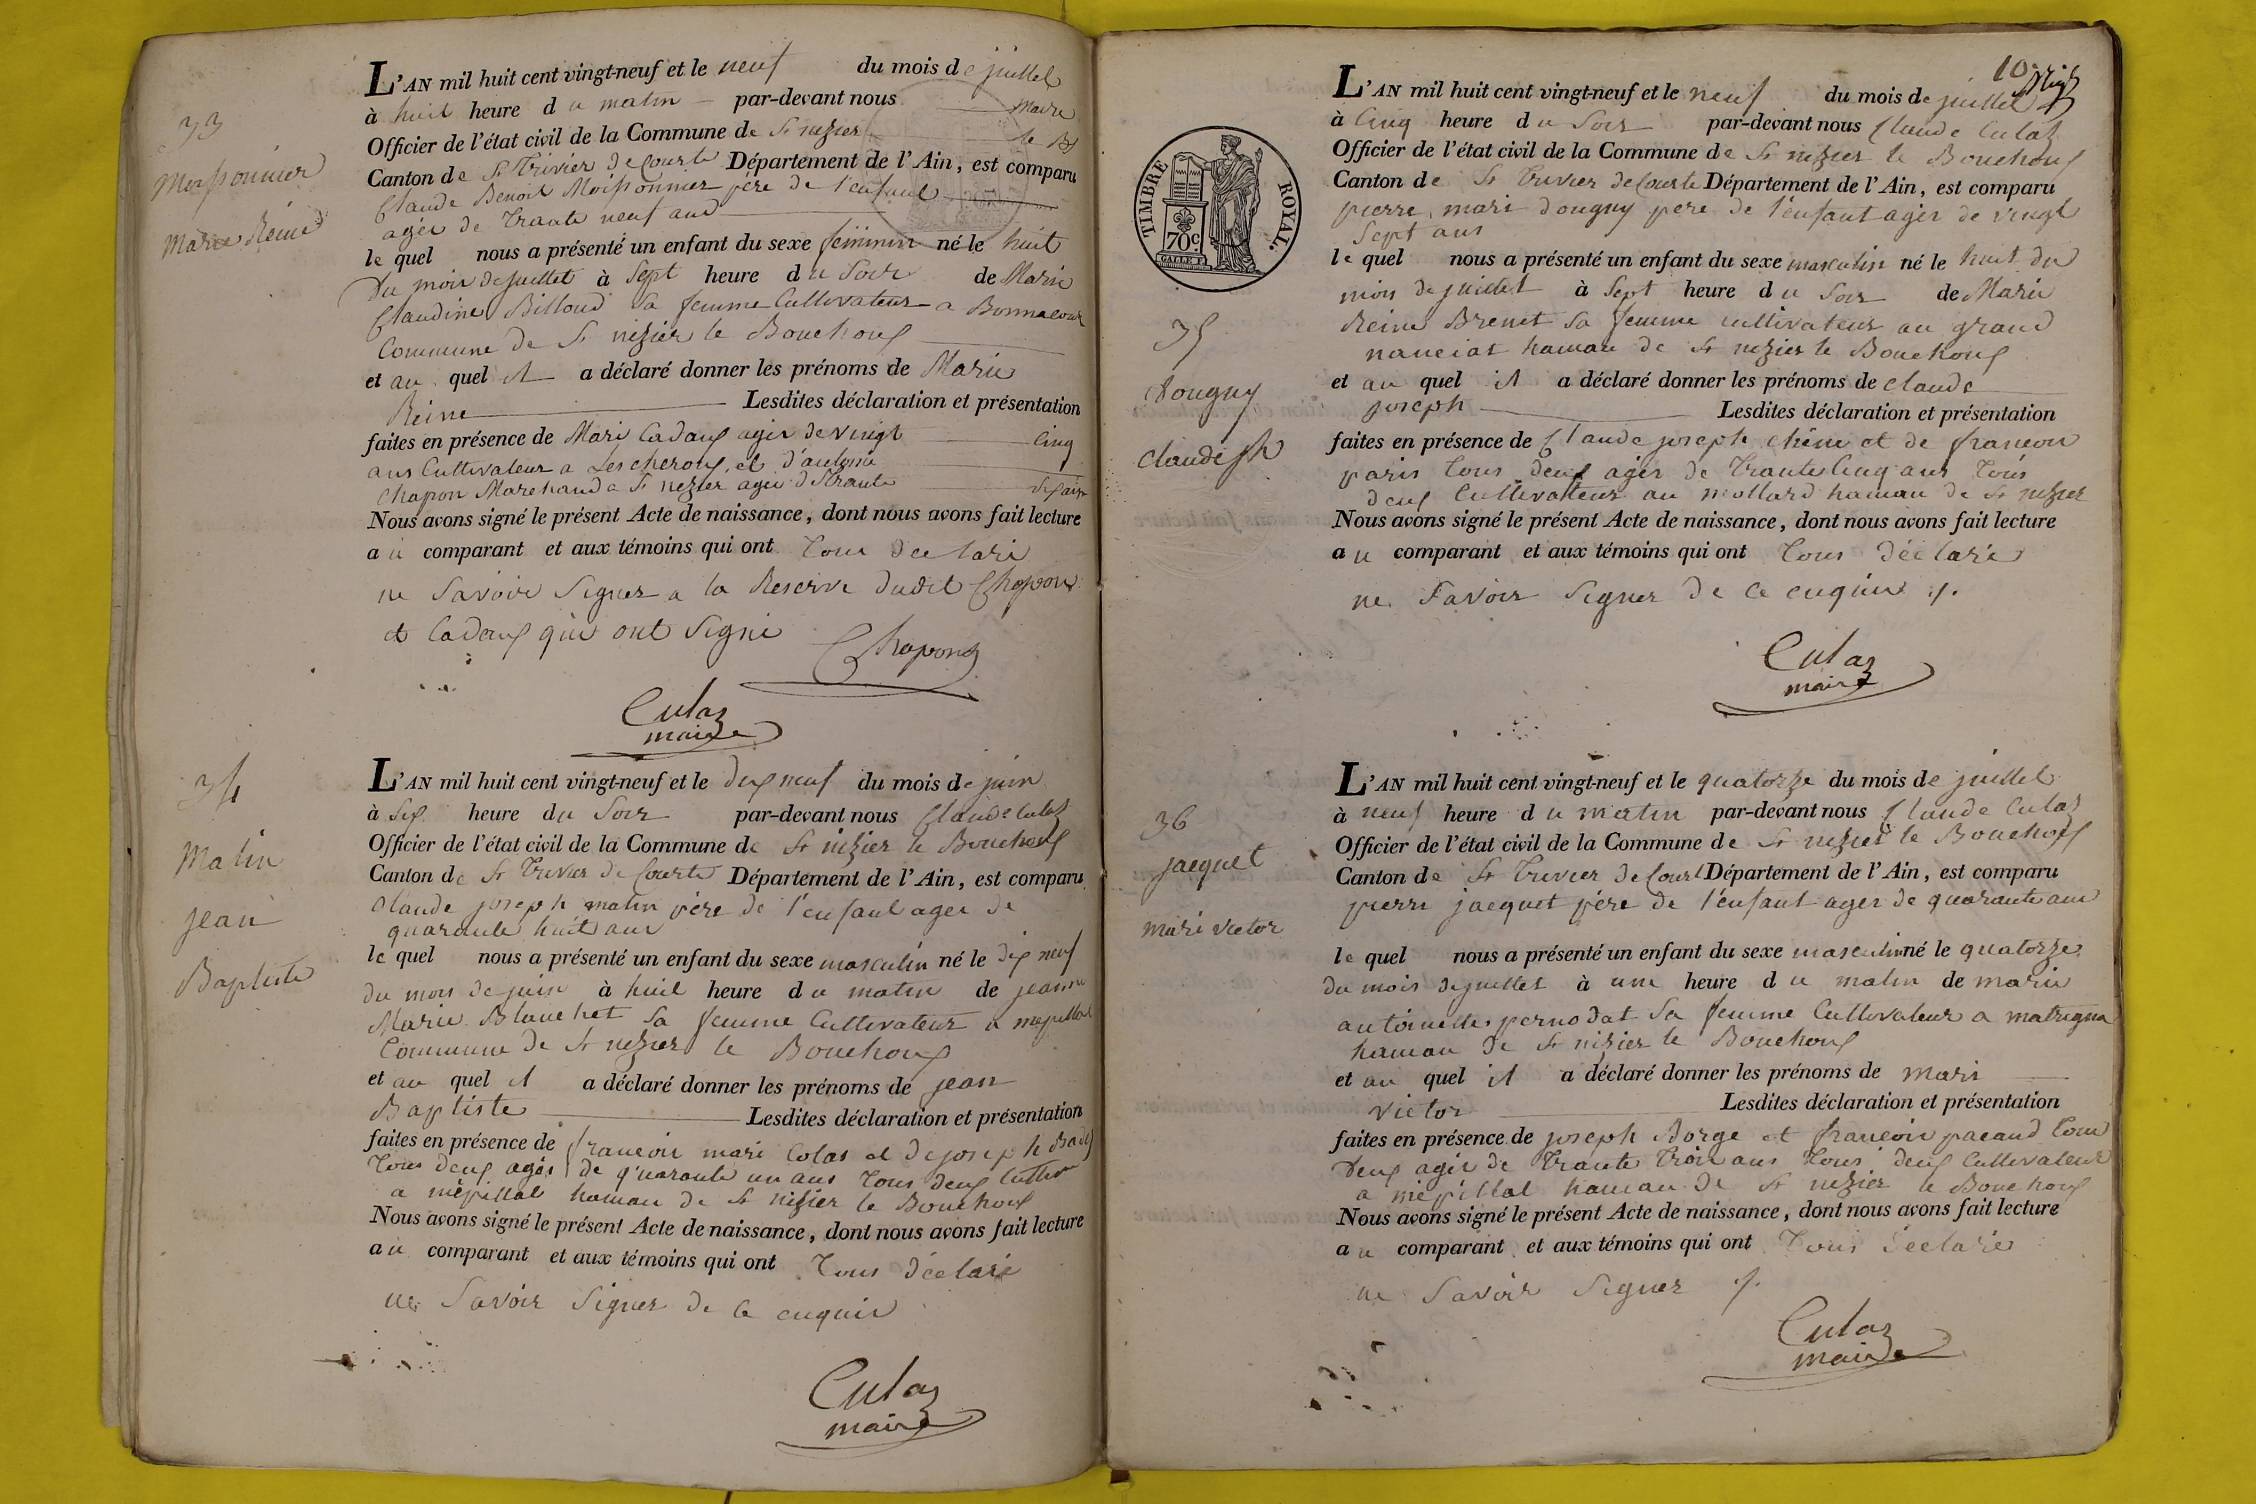 33
Moissonnier
Marie Reine
L'AN mil huit cent vingt-neuf et le neuf du mois de juillet
à huit heure du matin par-devant nous maire
Officier de l'état civil de la Commune de St nizier le B
Canton de St Trivier de Courte Département de l'Ain, est comparu
Claude Benoit Moissonnier père de l'enfant
agée de trante neuf ans
le quel nous a présenté un enfant du sexe feminin né le huit
du mois de juillet à Sept heure du Soir de Marie
Claudine Billoud sa femme Cultivateur a Bonnacour
Commune de St nizier le Bouchoux
et au quel il a déclaré donner les prénoms de Marie
Reine Lesdites déclaration et présentation
faites en présence de Mari Cadoux agée de vingt cinq
ans Cultivateur a Lescheroux, et d'antoine
Chapon Marchand a St nezier agée de trante
Nous avons signé le présent Acte de naissance, dont nous avons fait lecture
au comparant et aux témoins qui ont tous declaré
ne Savoir Signer a la Reserve dudit Chapon
et Cadoux qui ont Signé
Chapon
Culaz
maire
34
Matin
jean
Baptiste
L'AN mil huit cent vingt-neuf et le dix neuf du mois de juin
à Six heure du Soir par-devant nous Claude Culaz
Officier de l'état civil de la Commune de St nizier le Bouchoux
Canton de St Trivier de Courte Département de l'Ain, est comparu
Claude joseph matin père de l'enfant agée de
quarante huit ans
le quel nous a présenté un enfant du sexe masculin né le dix neuf
du mois de juin à huit heure du matin de jeanne
Marie Blanchet sa femme Cultivateur a mépillat
Commune de St nezier le Bouchoux
et au quel il a déclaré donner les prénoms de jean
Baptiste Lesdites déclaration et présentation
faites en présence de francoir mari Colas et de joseph
tous deux agés de quarante un ans tous deux Cultiv
a mépillat hamau de St nizier le Bouchoux
Nous avons signé le présent Acte de naissance, dont nous avons fait lecture
au comparant et aux témoins qui ont tous déclaré
ne Savoir Signer de ce enquir
Culaz
maire
10
TIMBRE ROYAL.
70c.
35
Dougny
L'AN mil huit cent vingt-neuf et le neuf du mois de juillet
à Cinq heure du Soir par-devant nous Claude Culaz
Officier de l'état civil de la Commune de St nizier le Bouchoux
Canton de St Trivier de Courte Département de l'Ain, est comparu
pierre mari dougny pere de l'enfant agée de vingt
Sept ans
le quel nous a présenté un enfant du sexe masculin né le huit du
mois de juillet à Sept heure du Soir de Marie
Reine Brenet Sa femme cultivateur au grand
nanciat hamau de St nezier le Bouchoux
et au quel il a déclaré donner les prénoms de Claude
joseph Lesdites déclaration et présentation
faites en présence de Claude joseph chêne et de francoir
paris tous deux agée de trante Cinq ans tous
deux Cultivateur au mollard hamau de St nezier
Nous avons signé le présent Acte de naissance, dont nous avons fait lecture
au comparant et aux témoins qui ont tous déclaré
ne Savoir Signer de ce enquir
Culaz
maire
36
jacquet
mari victor
L'AN mil huit cent vingt-neuf et le quatorze du mois de juillet
à neuf heure du matin par-devant nous Claude Culaz
Officier de l'état civil de la Commune de St nezier le Bouchoux
Canton de St Trivier de Court Département de l'Ain, est comparu
pierre jacquet père de l'enfant agée de quarante ans
le quel nous a présenté un enfant du sexe masculin né le quatorze
du mois de juillet à une heure du matin de marie
antoinette pernodat Sa femme Cultivateur a matrigna
hamau de St nizier le Bouchoux
et au quel il a déclaré donner les prénoms de mari
victor Lesdites déclaration et présentation
faites en présence de joseph Borge et francoir pacaud tous
deux agée de trante trois ans tous deux Cultivateur
a mépillat hamau de St nezier le Bouchoux
Nous avons signé le présent Acte de naissance, dont nous avons fait lecture
au comparant et aux témoins qui ont tous déclaré
ne Savoir Signer
Culaz
maire